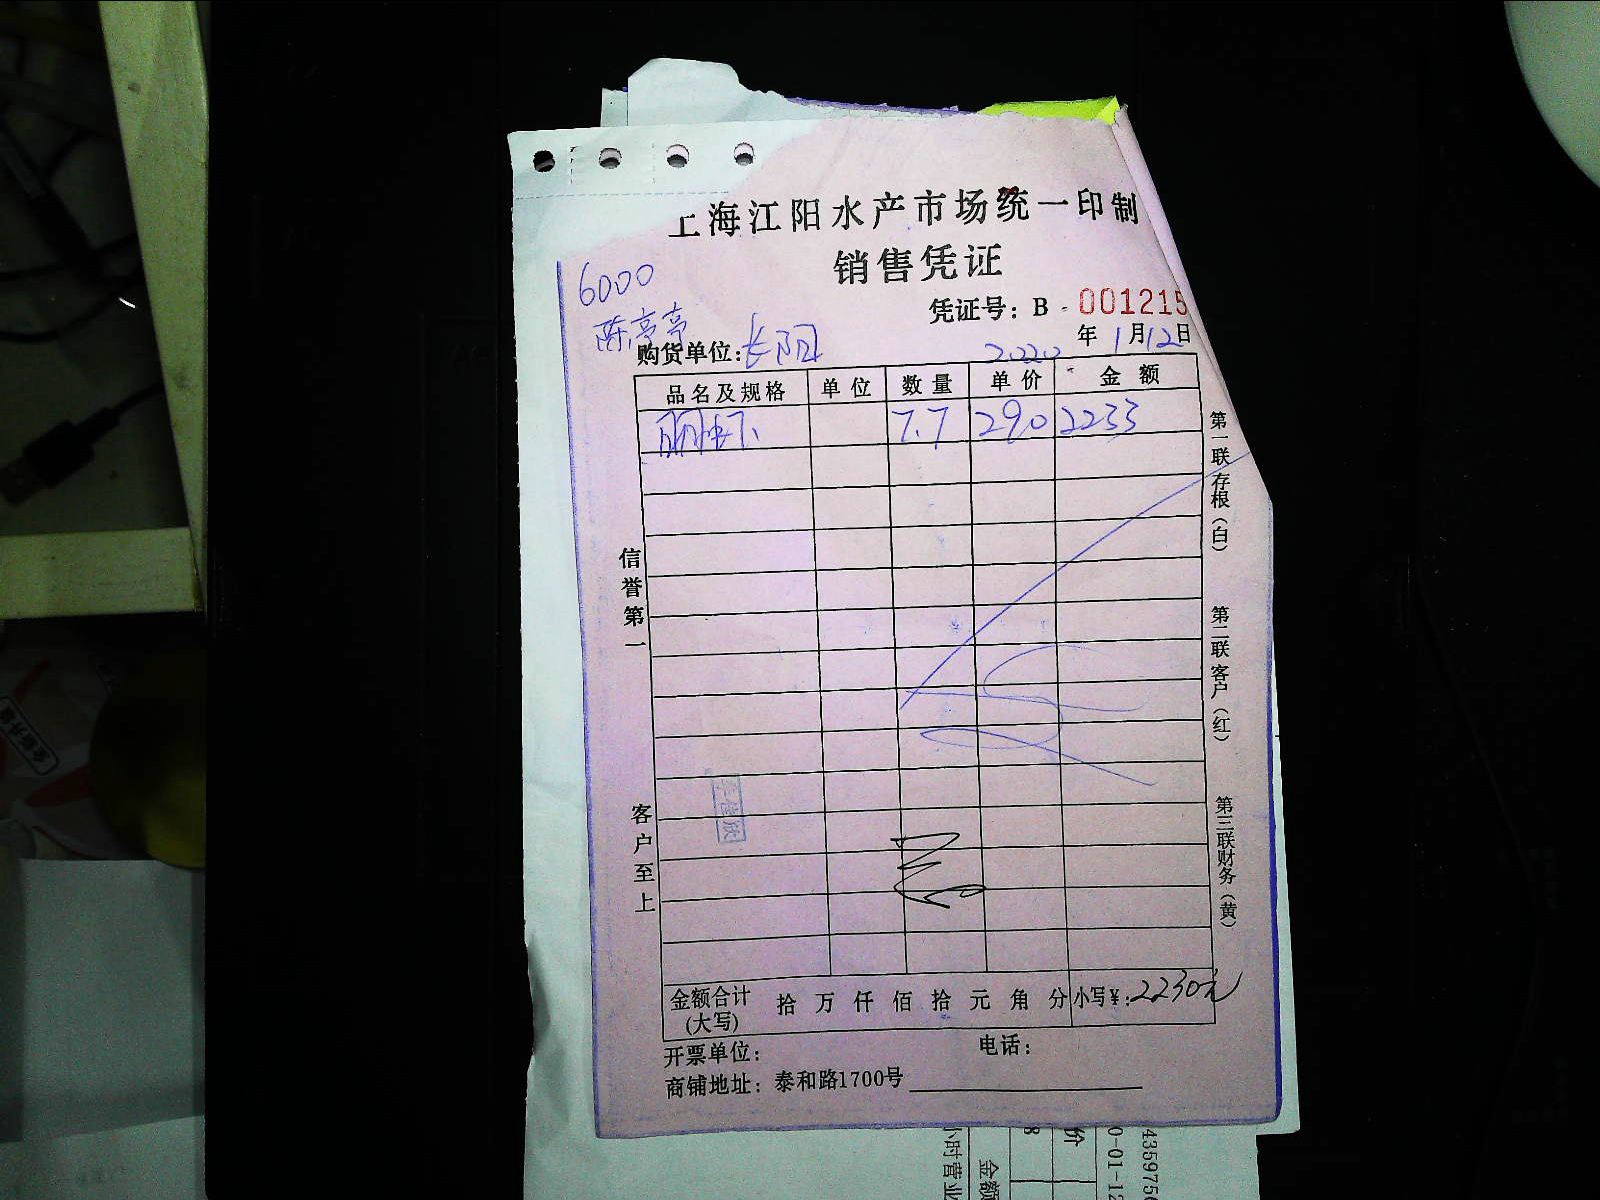 上海江阳水产市场统一印制
销售凭证
6000
凭证号：B 001215
陈亭亭
购货单位：长阳
2020年1月12日
品名及规格 单位 数量 单价 金额
丽虾 7.7 290 2233
第一联存根（白）
第二联客户（红）
第三联财务（黄）
信誉第一
客户至上
金额合计(大写) 拾 万 仟 佰 拾 元 角 分 小写¥：2230元
开票单位： 电话：
商铺地址：泰和路1700号
小时营业
金额
价
8
0-01-12
4359756